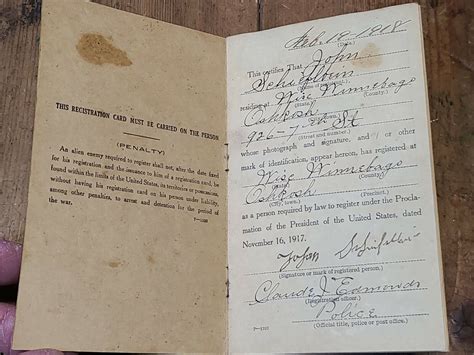 THIS REGISTRATION CARD MUST BE CARRIED ON THE PERSON
(PENALTY)
An alien enemy required to register shall not, after the date fixed
for his registration and the issuance to him of a registration card, be
found within the limits of the United States, its territories or possessions,
without having his registration card on his person under liability,
among other penalties, to arrest and detention for the period of
the war.
Feb. 19-1918
(Date.)
This certifies That John
(Name of registrant.)
residing at Wisc Winnebago
(State.) (County.)
Oshkosh
(City, town.)
926-7th St
(Street and number.)
whose photograph and signature, and / or other
mark of identification, appear hereon, has registered at
Wisc Winnebago
(State.) (County.)
Oshkosh
(City, town.) (Precinct.)
as a person required by law to register under the Procla-
mation of the President of the United States, dated
November 16, 1917.
John
(Signature or mark of registered person.)
Claude J Edmonds
(Registration officer.)
Police
(Official title, police or post office.)